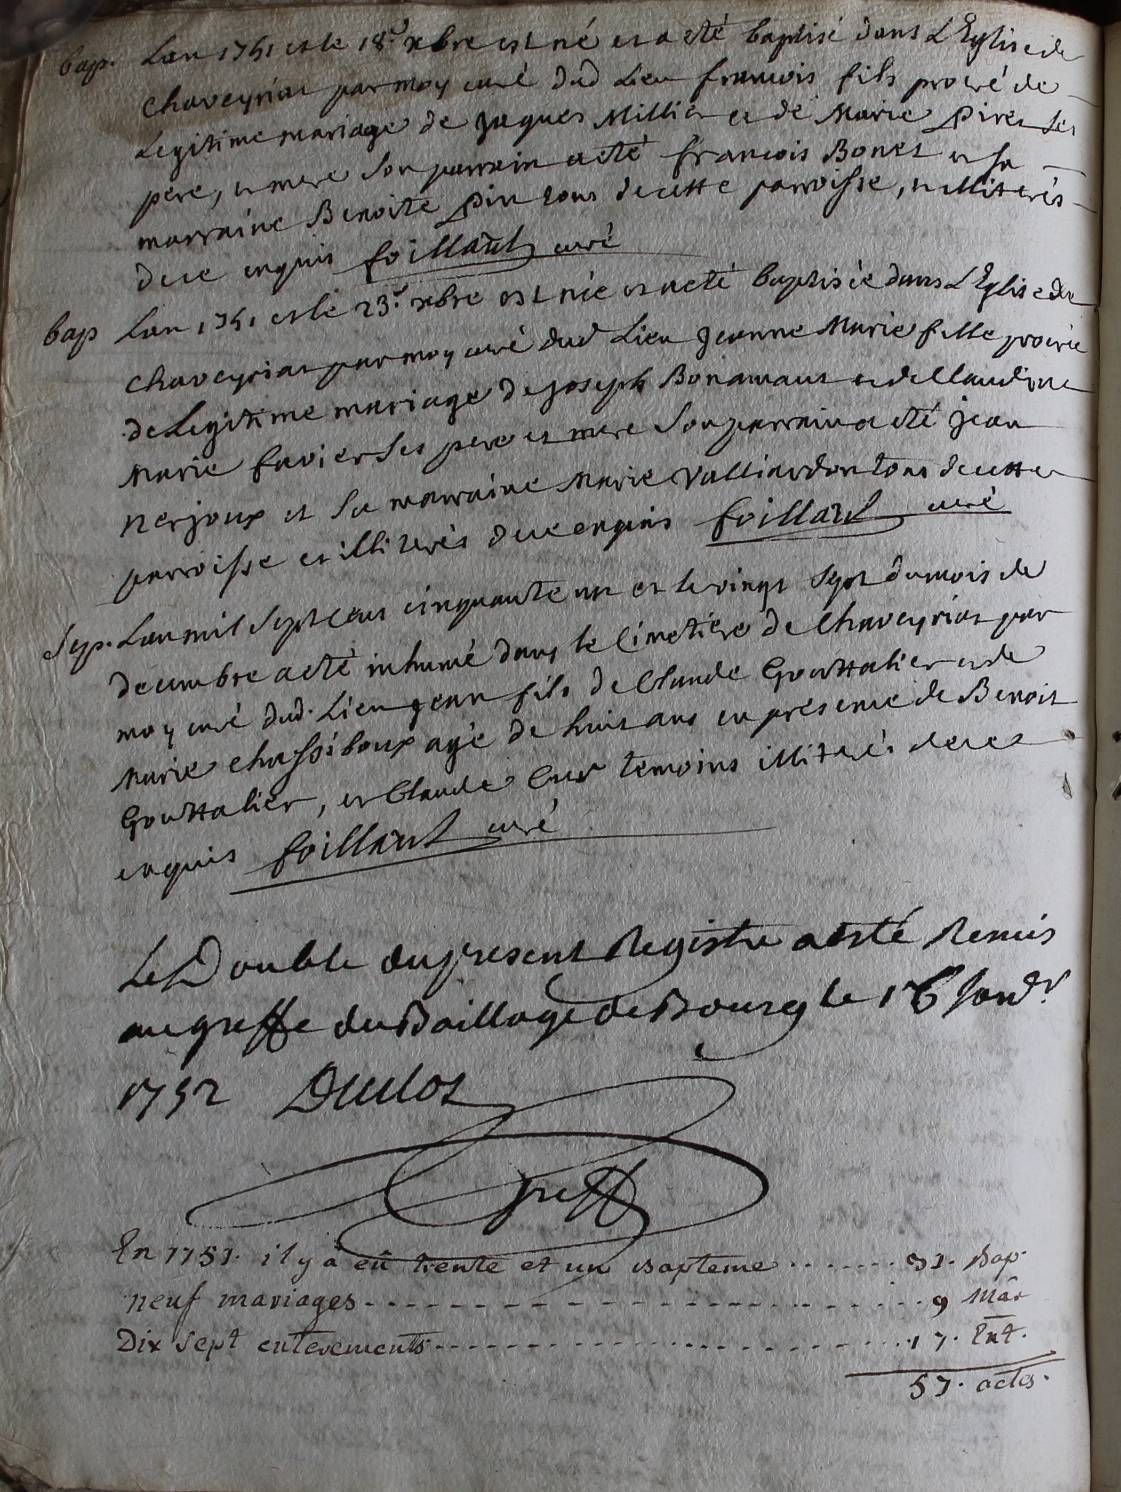 bap. Lan 1751 et le 18.e xbre est né et a eté baptisé dans L'Eglise de
Chaveyriat par moy curé dud Lieu francois fils procréé de
Legitime mariage de Jaques Millier et de Marie Piret ses
pere, et mere son parrain a eté francois Bonet et sa
marraine Benoite Piret tous de cette parroisse, illiterés
de ce enquis foillant curé
bap Lan 1751 et le 23.e xbre est née et a eté baptisée dans L'Eglise de
Chaveyriat par moy curé dud Lieu Jeanne Marie fille procréé
de Legitime mariage de Joseph Bonamant et de Claudine
Marie favier ses pere et mere son parrain a eté Jean
nerjoux et sa marraine Marie Valliardon tous de cette
parroisse et illiterés de ce enquis foillant curé
Sep. Lan mil sept cens cinquante un et le vingt sept du mois de
decembre a eté inhumé dans le Cimetiére de Chaveyriat par
moy curé dud. Lieu jean fils de Claude Gouttalier et de
Marie chassiboux agé de huit ans en presence de Benoit
Gouttalier, et Claude temoins illiterés de ce
enquis foillant curé
Le Double du present Registre a esté Remis
au greffe du Baillage de Bourg le 16 Janv.r
1752 Duclos
greff
En 1751. il y à eû trente et un Bapteme ....... 31. Bap.
neuf mariages - - - - - - - - - - - - - - - - - 9 Mâr
Dix sept enterements - - - - - - - - - - - - - 17. Ent.
57. actes.